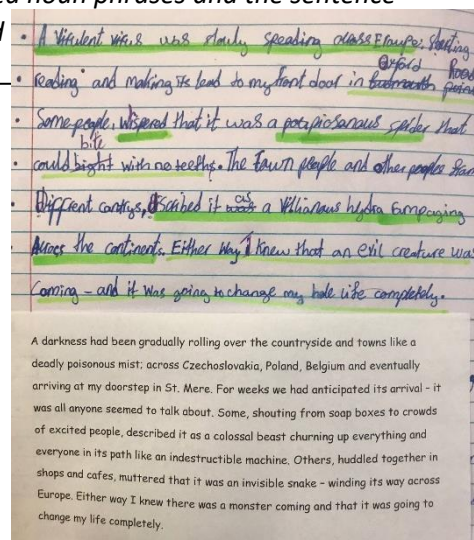 ed noun phrases and the sentence
A Virulent virus was slowly speading across Europe; starting
Oxford Road
reading and making its lead to my front door in
Some people, wispered that it was a spider that
bite
could bight with no teeths. The Town people and other people from
as
Diffrent contrys, dscribed it a Villianous hydra rampaging
Across the continents. Either way I knew that an evil creature was
Coming - and it was going to change my hole life completely.
A darkness had been gradually rolling over the countryside and towns like a
deadly poisonous mist; across Czechoslovakia, Poland, Belgium and eventually
arriving at my doorstep in St. Mere. For weeks we had anticipated its arrival - it
was all anyone seemed to talk about. Some, shouting from soap boxes to crowds
of excited people, described it as a colossal beast churning up everything and
everyone in its path like an indestructible machine. Others, huddled together in
shops and cafes, muttered that it was an invisible snake - winding its way across
Europe. Either way I knew there was a monster coming and that it was going to
change my life completely.